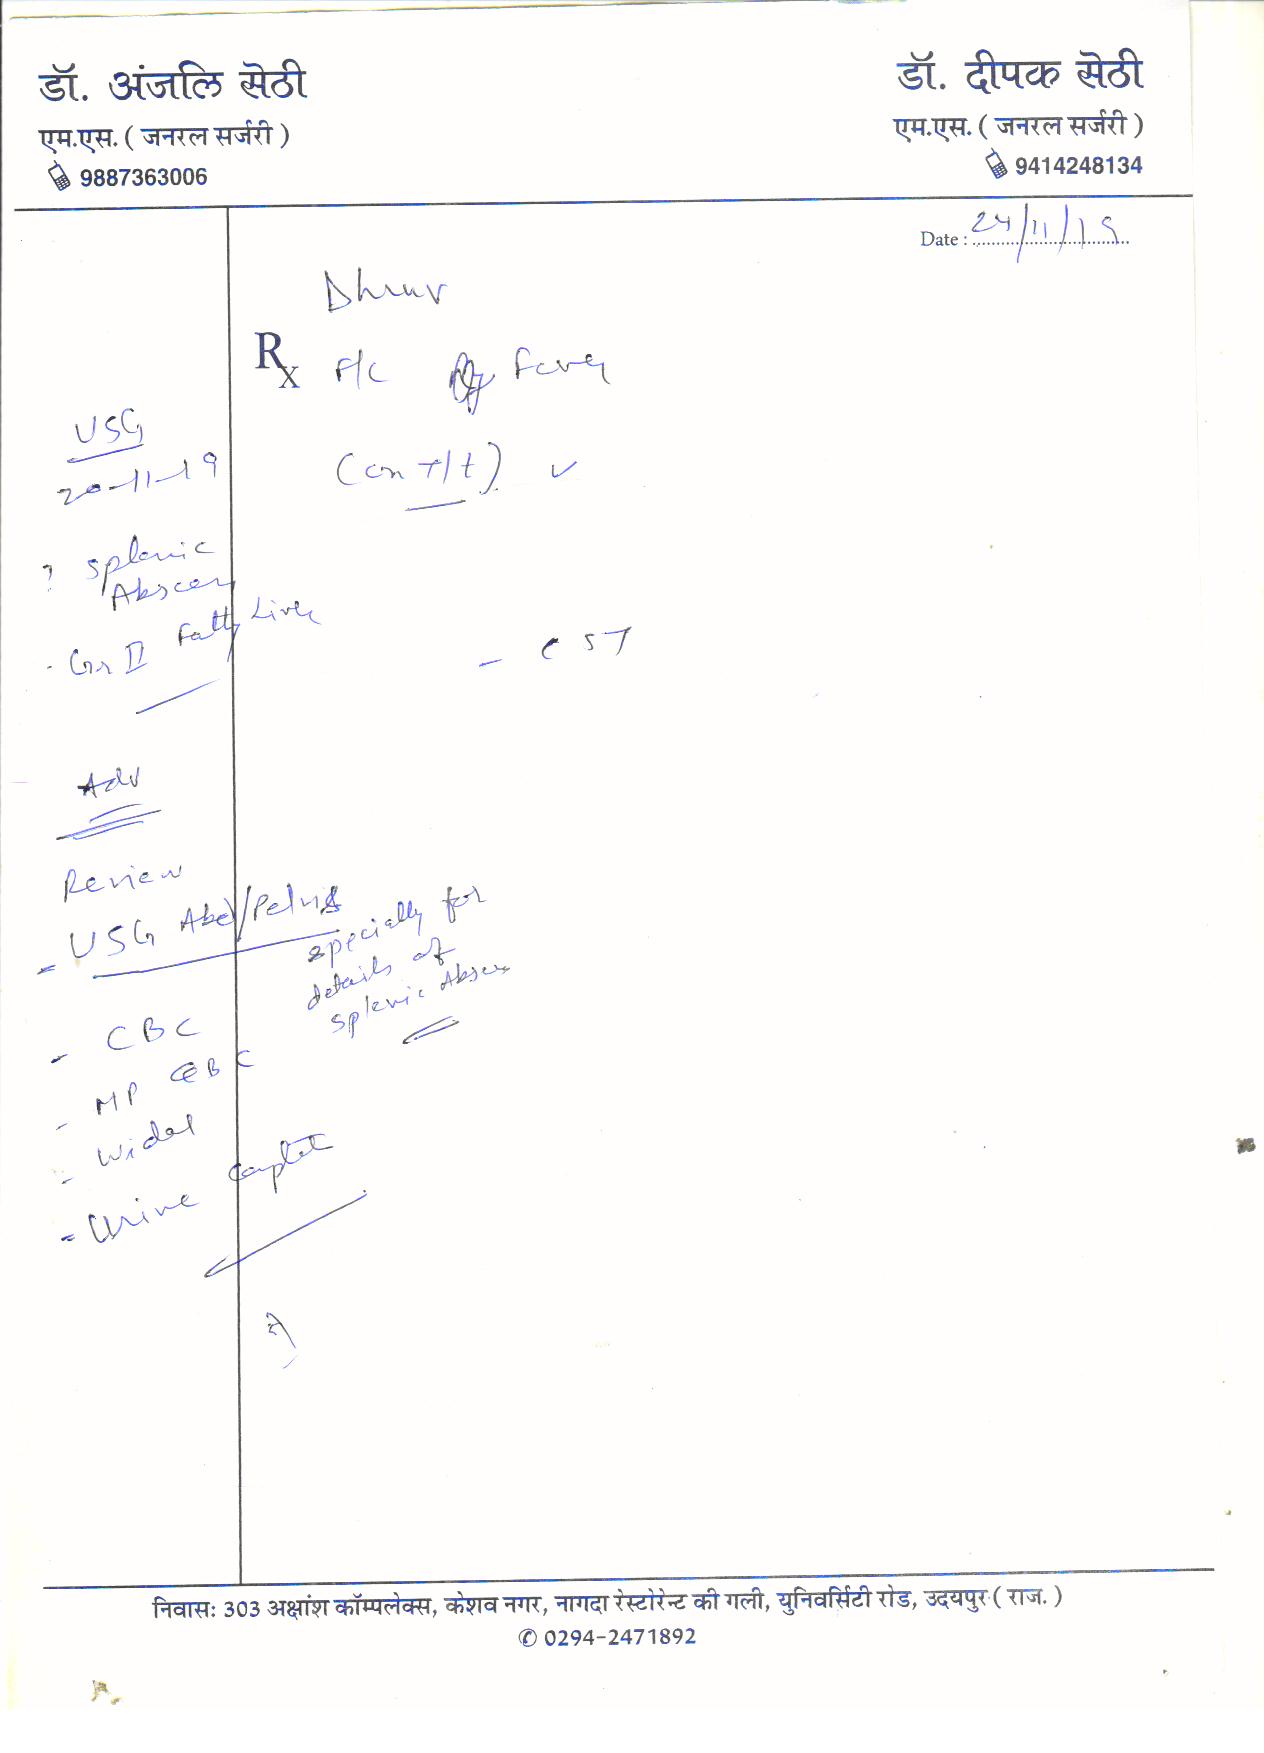 डॉ. अंजलि सेठी
एम.एस. ( जनरल सर्जरी )
9887363006
डॉ. दीपक सेठी
एम.एस. ( जनरल सर्जरी )
9414248134
Date : 24/11/19
Dhruv
Rx F/C of Fever
(on T/t) ✓
USG
20-11-19
? Splenic
Abscess
- Gr II Fatty Liver
- CST
Adv
Review
- USG Abd/Pelvis
specially for
details of
splenic Abscess
- CBC
- MP
- Widal
- Urine Complete
निवासः 303 अक्षांश कॉम्पलेक्स, केशव नगर, नागदा रेस्टोरेन्ट की गली, युनिवर्सिटी रोड, उदयपुर ( राज. )
✆ 0294-2471892